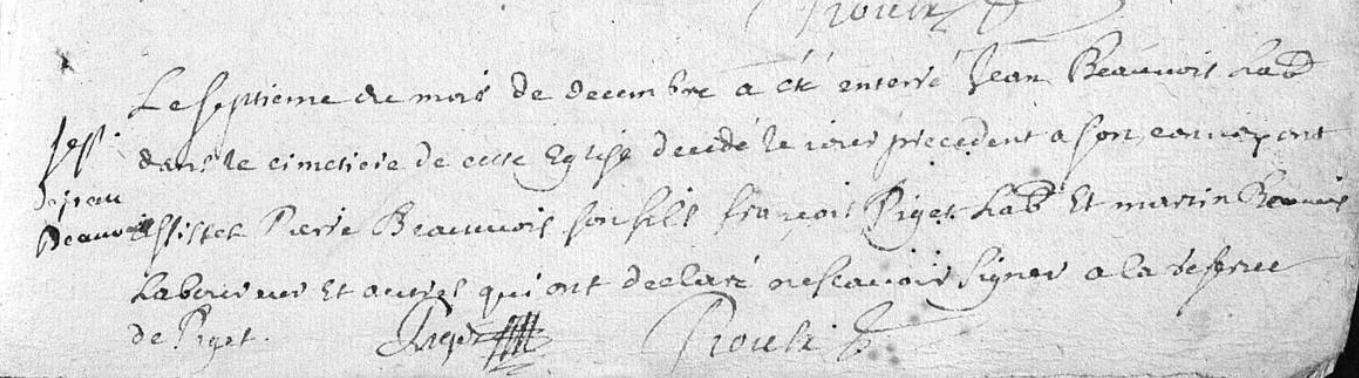 Le septieme du mois de decembre a été enterré Jean Beauvois Lab
dans le cimetiere de cette Eglise decedé le iour precedent a son convoy ont
Sep.
de jean
Beauvois
assistez Pierre Beauvois son fils françois Piget Lab Et martin Beauvois
Laboureurs Et autres qui ont declaré ne scavoir signer a la reserve
de Piget. Piget